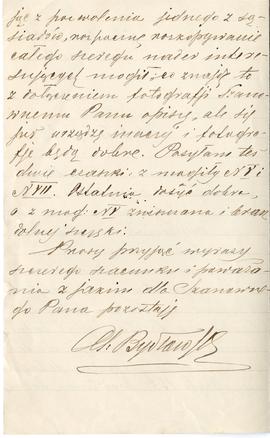 już z pozwolenia jednego z są-
siadów, rozpocznę rozkopywanie
całego szeregu nader intere-
sujących mogił, co znajdę to
z dołączeniem fotografji Szano-
wnemu Panu opiszę, ale się
już urządzę inaczej i fotogra-
fje będą dobre. Posyłam też
dwie czaszki z mogiły № V i
№ VII. Ostatnia dosyć dobra,
a z mog. № V zniszczona i bez
dolnej szczęki.
Proszę przyjąć wyrazy
szczerego szacunku i poważa-
nia z jakim dla Szanowne-
go Pana pozostaję